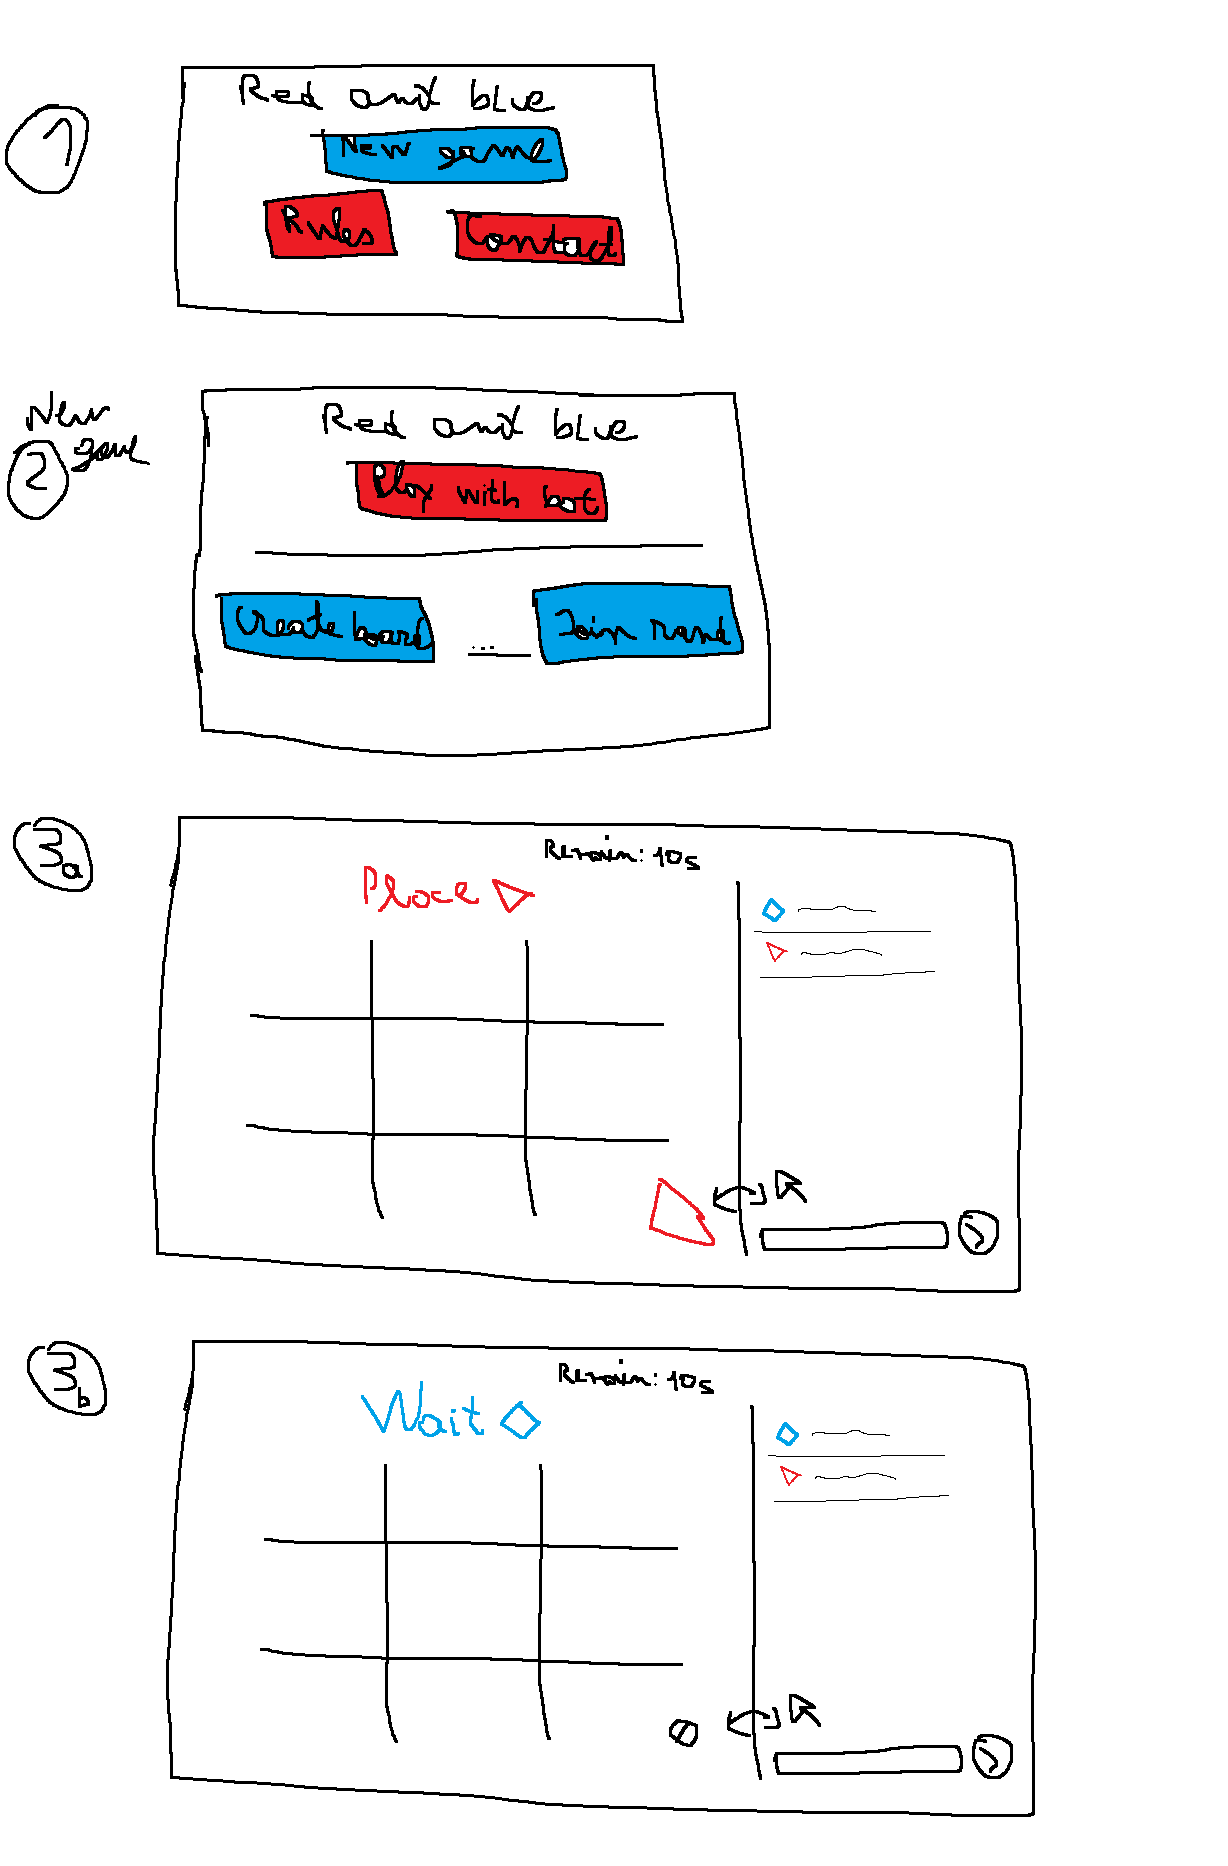 1
Red and blue
New game
Rules
Contact
New
game
2
Red and blue
Play with bot
Create board
...
Join rand
3a
Remain: 10s
Place
3b
Remain: 10s
Wait